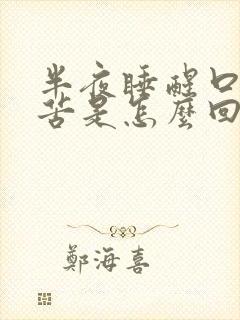 半夜睡醒口
苦是怎麼回
鄭海喜